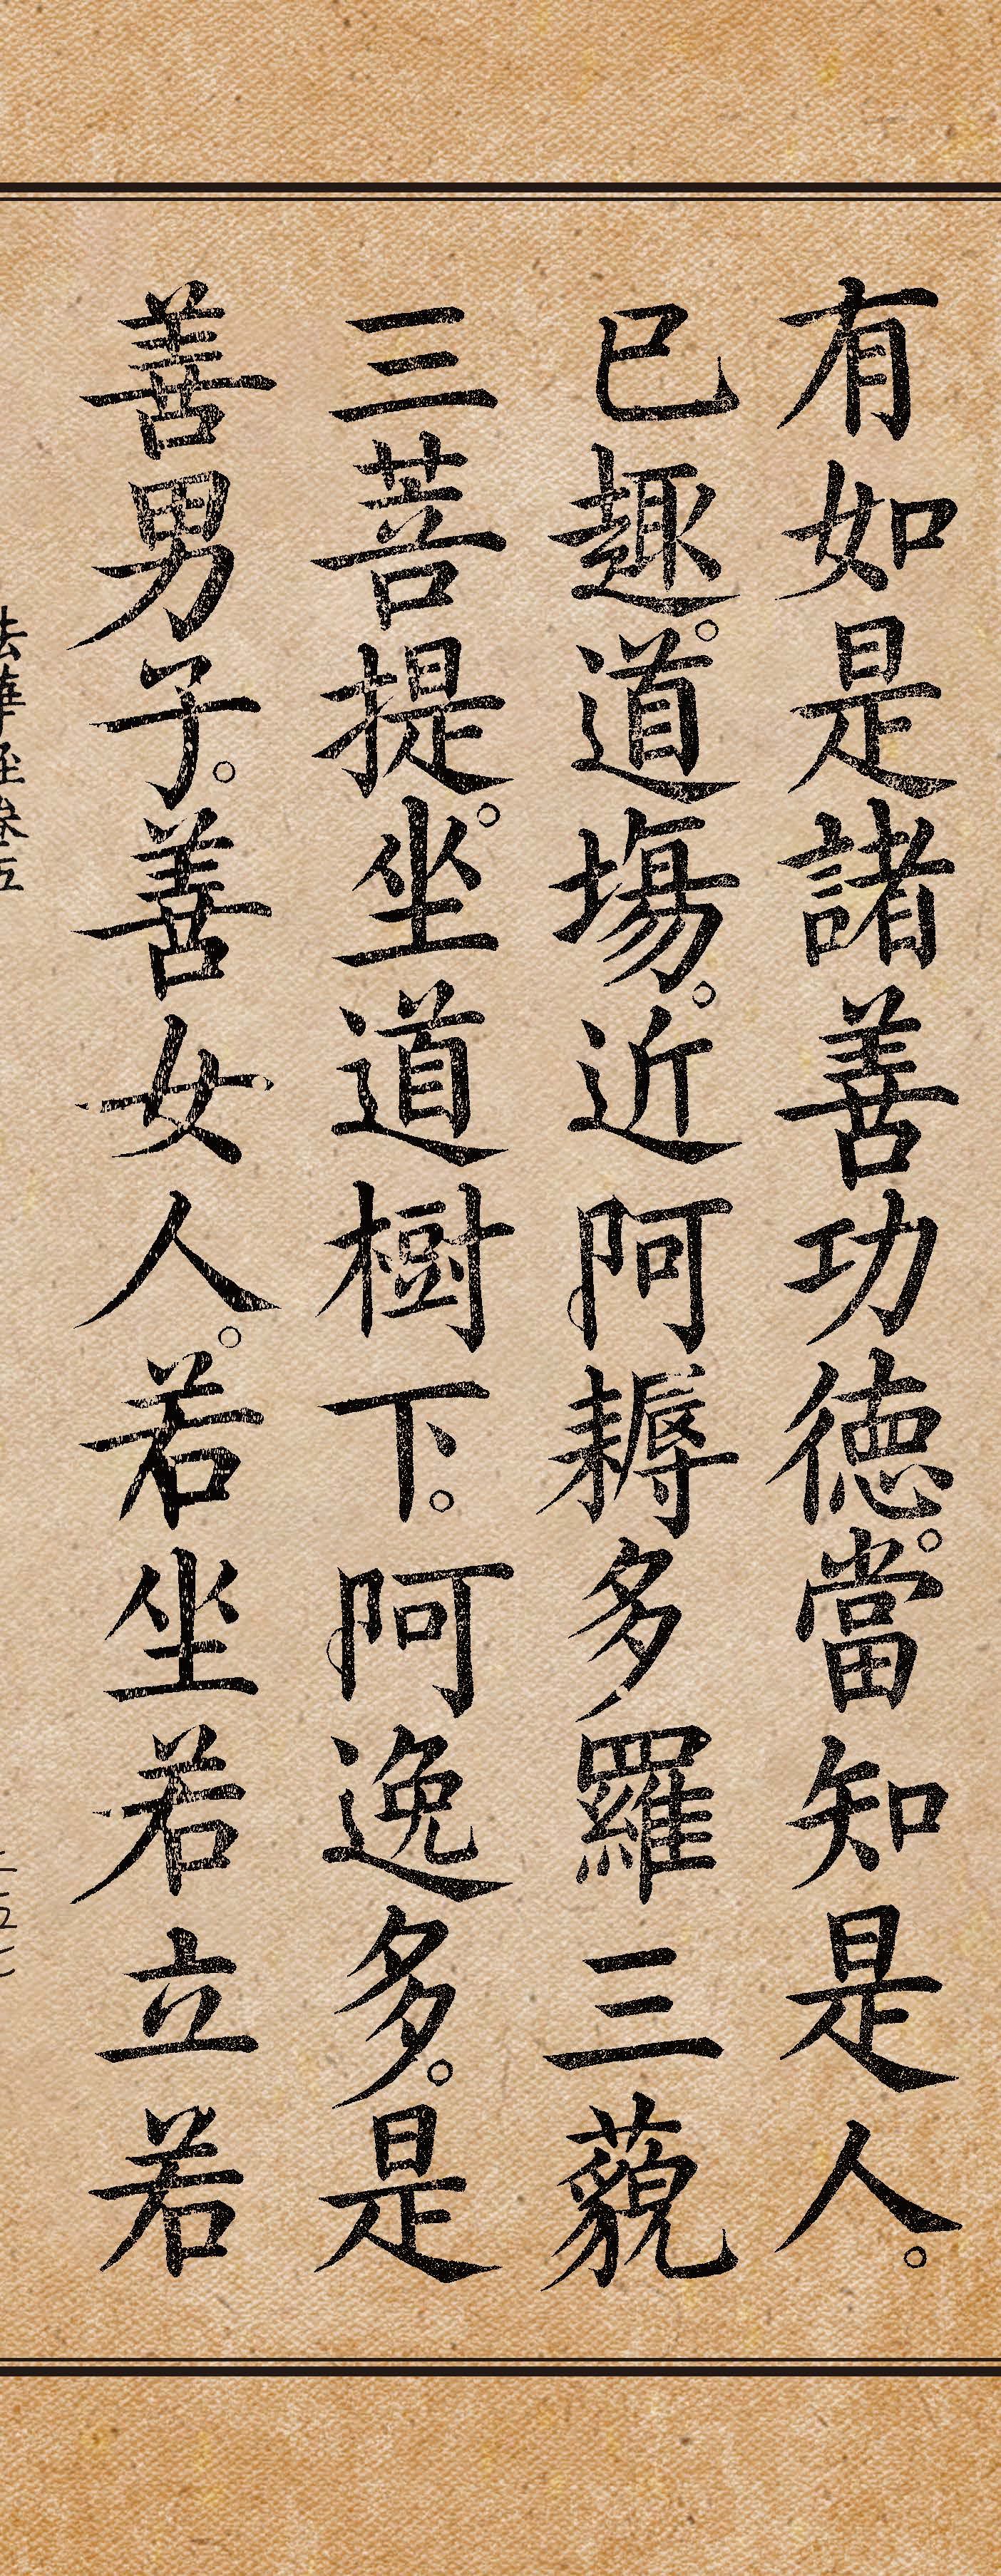 有如是諸善功德。當知是人。
已趣。道場。近阿耨多羅三藐
三菩提。坐道樹下。阿逸多。是
善男子。善女人。若坐若立若
法華經卷五